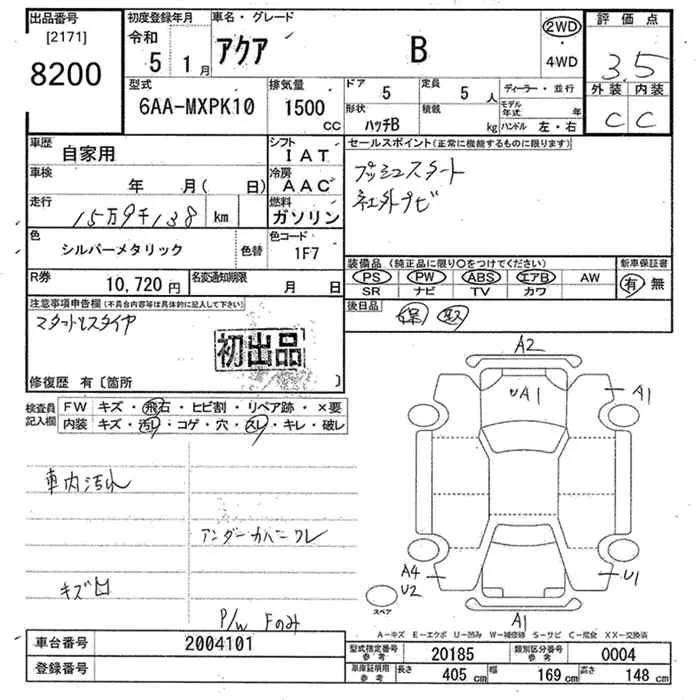 出品番号
[2171]
8200
初度登録年月
令和
5 1月
車名・グレード
アクア B
2WD
・
4WD
評価点
3.5
外装 内装
C C
型式
6AA-MXPK10
排気量
1500
CC
ドア
5
定員
5 人
形状
ハッチB
積載
kg
ディーラー・並行
モデル年式 年
ハンドル 左・右
車歴
自家用
シフト
IAT
車検
年 月( 日)
冷房
AAC
走行
15万9千138 km
燃料
ガソリン
色
シルバーメタリック
色替
色コード
1F7
R券
10,720円
名変通知期限
月 日
セールスポイント(正常に機能するものに限ります)
プッシュスタート
社外ナビ
装備品(純正品に限り○をつけてください)
PS PW ABS エアB AW
SR ナビ TV カワ
新車保証書
有 無
後日品
保 取
注意事項申告欄(不具合内容等は具体的に記入して下さい)
初出品
修復歴 有〔箇所 〕
検査員
記入欄
FW キズ・飛石・ヒビ割・リペア跡・×要
内装 キズ・汚レ・コゲ・穴・スレ・キレ・破レ
車内汚れ
アンダーカバーワレ
キズ凹
P/W Fのみ
A2
UA1
A1
A4
U2
U1
スペア
A1
A-キズ E-エクボ U-凹み W-補修跡 S-サビ C-腐食 XX-交換済
車台番号
2004101
登録番号
型式指定番号
参考
20185
類別区分番号
参考
0004
車庫証明用
参考
長さ 405 cm 幅 169 cm 高さ 148 cm